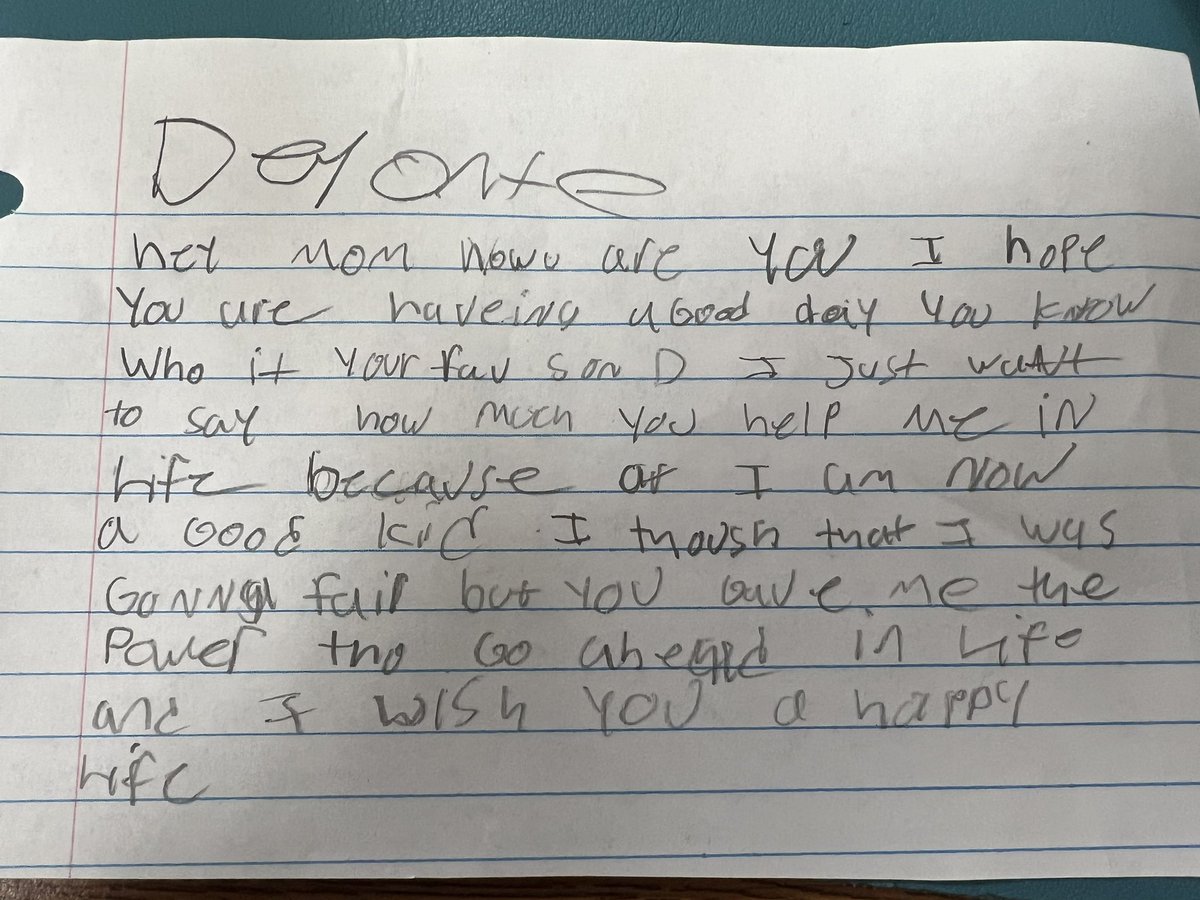 Deyonte
hey mom howe are you I hope
You are haveing a Good day You know
Who it your fav son D I just want
to say how much you help me in
life because at I am now
a Good kid I thoush that I was
Gonna fail but you gave me the
Power tho Go ahead in Life
and I wish you a happy
life